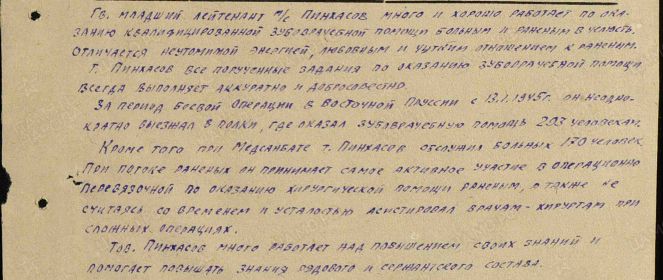 Гв. младший лейтенант м/с Пинхасов много и хорошо работает по ока-
занию квалифицированной зубоврачебной помощи больным и раненым в
Отличается неутомимой энергией, любовным и чутким отношением к раненым.
Т. Пинхасов все порученные задания по оказанию зубоврачебной помощи
всегда выполняет аккуратно и добросовестно.
За период боевой операции в Восточной Пруссии с 13.1.1945г. он неодно-
кратно выезжал в полки, где оказал зубврачебную помощь 203 человекам.
Кроме того при Медсанбате т. Пинхасов обслужил больных 170 человек.
При потоке раненых он принимает самое активное участие в операционно
перевязочной по оказанию хирургической помощи раненым, а также не
считаясь со временем и усталостью асистировал врачам-хирургам при
сложных операциях.
Тов. Пинхасов много работает над повышением своих знаний и
помогает повышать знания рядового и сержантского состава.